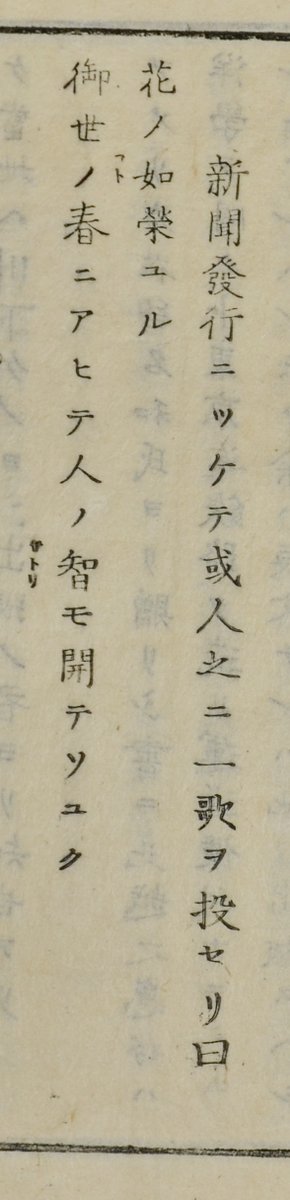 新聞發行ニツケテ或人之ニ一歌ヲ投セリ曰
花ノ如榮ユル
御世ノ春ニアヒテ人ノ智モ開テソユク
コト
サトリ